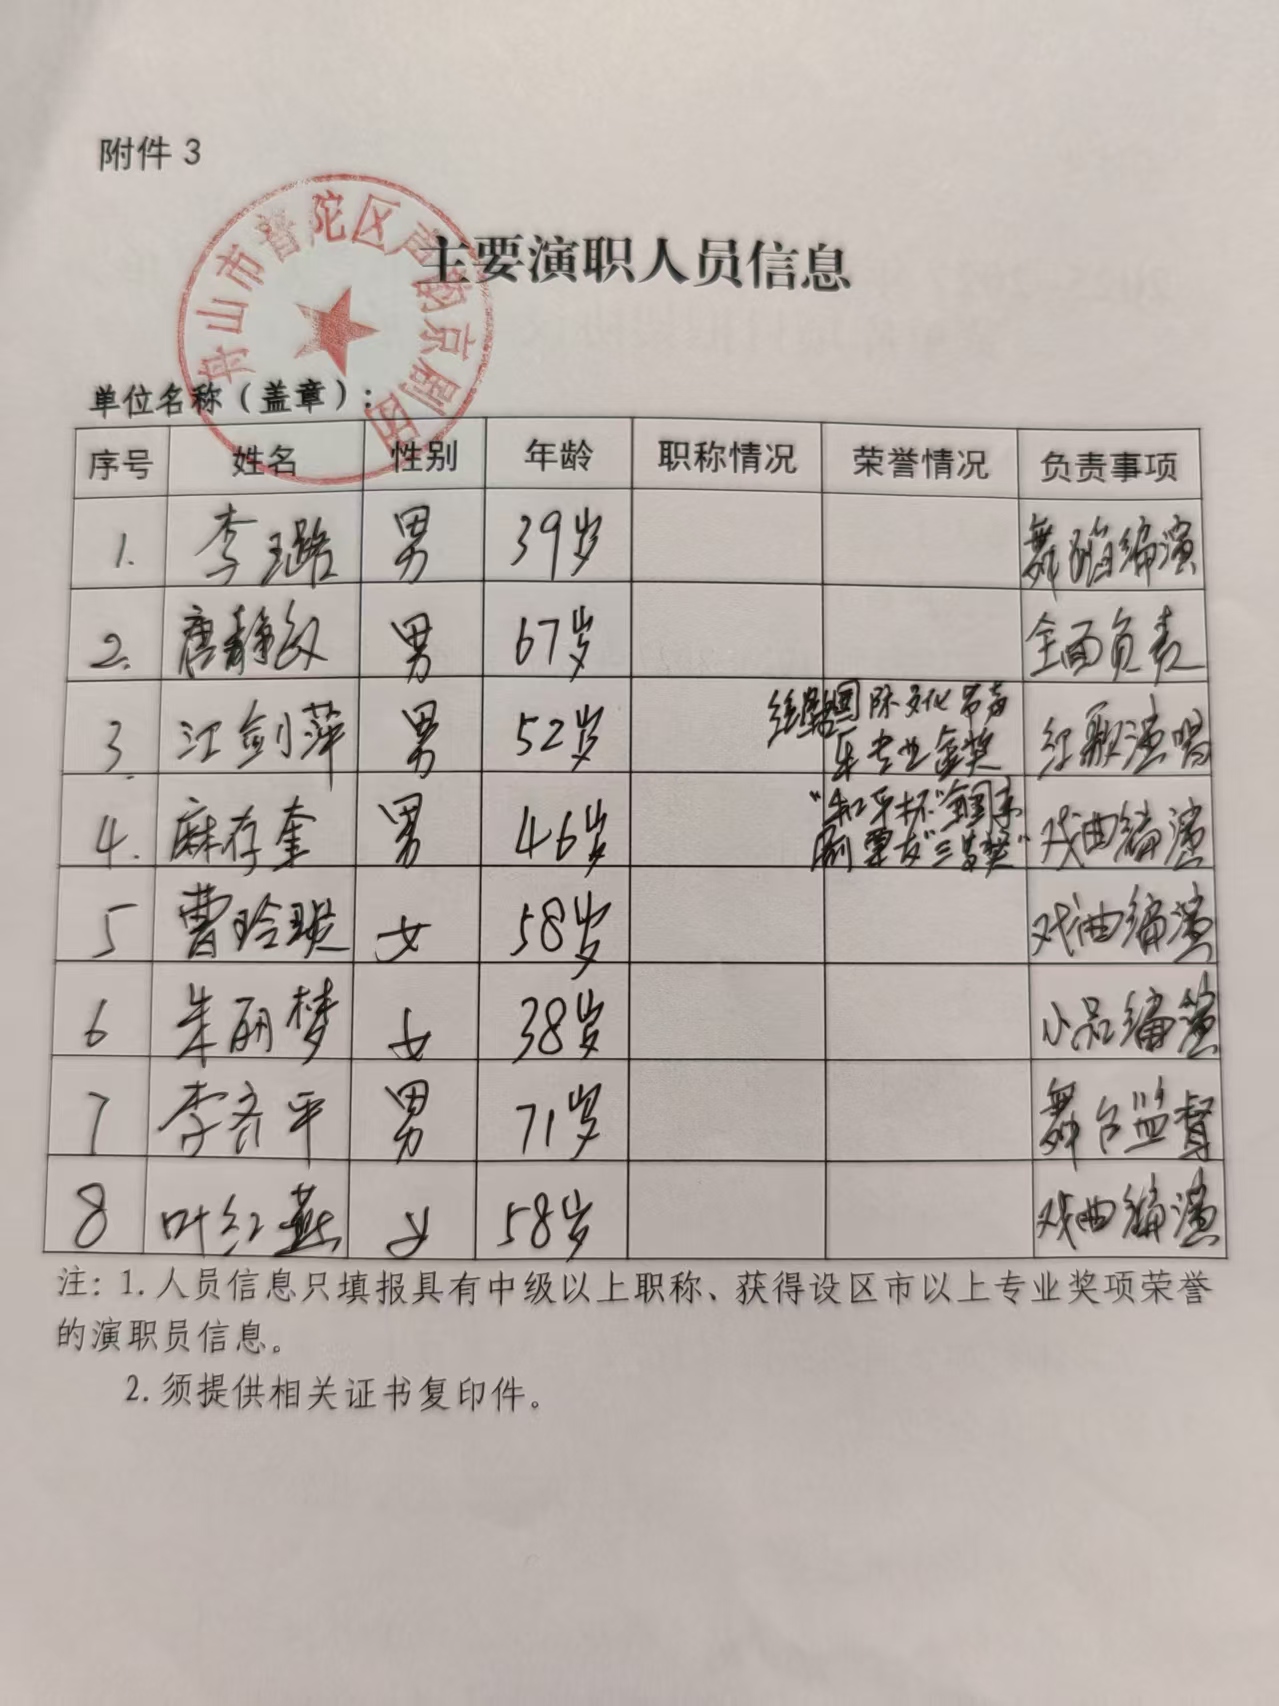 附件 3
舟山市普陀区 京剧团
主要演职人员信息
单位名称（盖章）：
序号 姓名 性别 年龄 职称情况 荣誉情况 负责事项
1. 李璐 男 39岁 舞蹈编演
2. 唐静 男 67岁 全面负责
3. 江剑萍 男 52岁 国际文化节声乐专业金奖 红歌演唱
4. 麻存奎 男 46岁 "和平杯"全国京剧票友"三等奖" 戏曲编演
5 曹玲 女 58岁 戏曲编演
6 朱丽梦 女 38岁 小品编演
7 李齐平 男 71岁 舞台监督
8 叶红燕 女 58岁 戏曲编演
注：1. 人员信息只填报具有中级以上职称、获得设区市以上专业奖项荣誉
的演职员信息。
2. 须提供相关证书复印件。